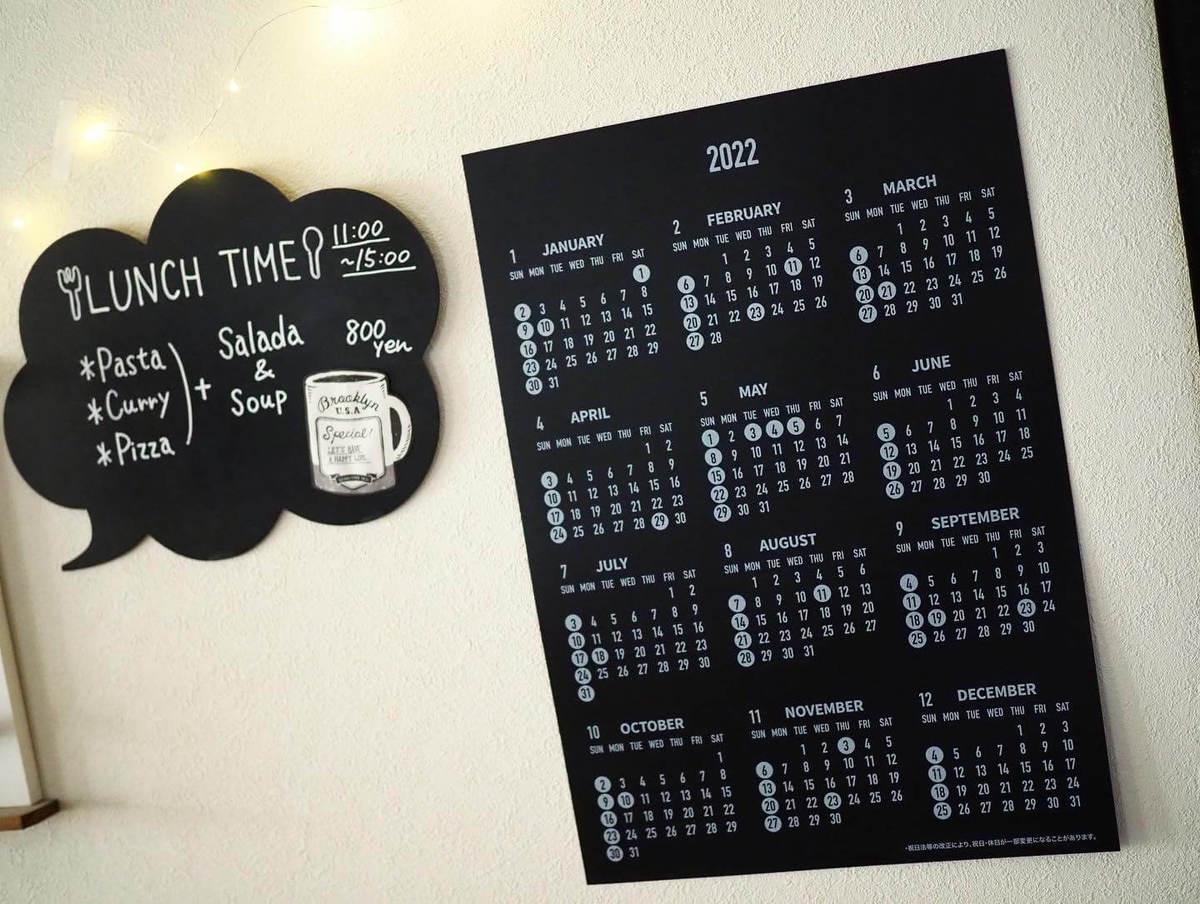 LUNCH TIME
11:00
~15:00
*Pasta
*Curry
*Pizza
+
Salada
&
Soup
800
yen
Brooklyn
U.S.A
Special!
2022
1 JANUARY
SUN MON TUE WED THU FRI SAT
1
2 3 4 5 6 7 8
9 10 11 12 13 14 15
16 17 18 19 20 21 22
23 24 25 26 27 28 29
30 31
2 FEBRUARY
SUN MON TUE WED THU FRI SAT
1 2 3 4 5
6 7 8 9 10 11 12
13 14 15 16 17 18 19
20 21 22 23 24 25 26
27 28
3 MARCH
SUN MON TUE WED THU FRI SAT
1 2 3 4 5
6 7 8 9 10 11 12
13 14 15 16 17 18 19
20 21 22 23 24 25 26
27 28 29 30 31
4 APRIL
SUN MON TUE WED THU FRI SAT
1 2
3 4 5 6 7 8 9
10 11 12 13 14 15 16
17 18 19 20 21 22 23
24 25 26 27 28 29 30
5 MAY
SUN MON TUE WED THU FRI SAT
1 2 3 4 5 6 7
8 9 10 11 12 13 14
15 16 17 18 19 20 21
22 23 24 25 26 27 28
29 30 31
6 JUNE
SUN MON TUE WED THU FRI SAT
1 2 3 4
5 6 7 8 9 10 11
12 13 14 15 16 17 18
19 20 21 22 23 24 25
26 27 28 29 30
7 JULY
SUN MON TUE WED THU FRI SAT
1 2
3 4 5 6 7 8 9
10 11 12 13 14 15 16
17 18 19 20 21 22 23
24 25 26 27 28 29 30
31
8 AUGUST
SUN MON TUE WED THU FRI SAT
1 2 3 4 5 6
7 8 9 10 11 12 13
14 15 16 17 18 19 20
21 22 23 24 25 26 27
28 29 30 31
9 SEPTEMBER
SUN MON TUE WED THU FRI SAT
1 2 3
4 5 6 7 8 9 10
11 12 13 14 15 16 17
18 19 20 21 22 23 24
25 26 27 28 29 30
10 OCTOBER
SUN MON TUE WED THU FRI SAT
1
2 3 4 5 6 7 8
9 10 11 12 13 14 15
16 17 18 19 20 21 22
23 24 25 26 27 28 29
30 31
11 NOVEMBER
SUN MON TUE WED THU FRI SAT
1 2 3 4 5
6 7 8 9 10 11 12
13 14 15 16 17 18 19
20 21 22 23 24 25 26
27 28 29 30
12 DECEMBER
SUN MON TUE WED THU FRI SAT
1 2 3
4 5 6 7 8 9 10
11 12 13 14 15 16 17
18 19 20 21 22 23 24
25 26 27 28 29 30 31
・祝日法等の改正により、祝日・休日が一部変更になることがあります。